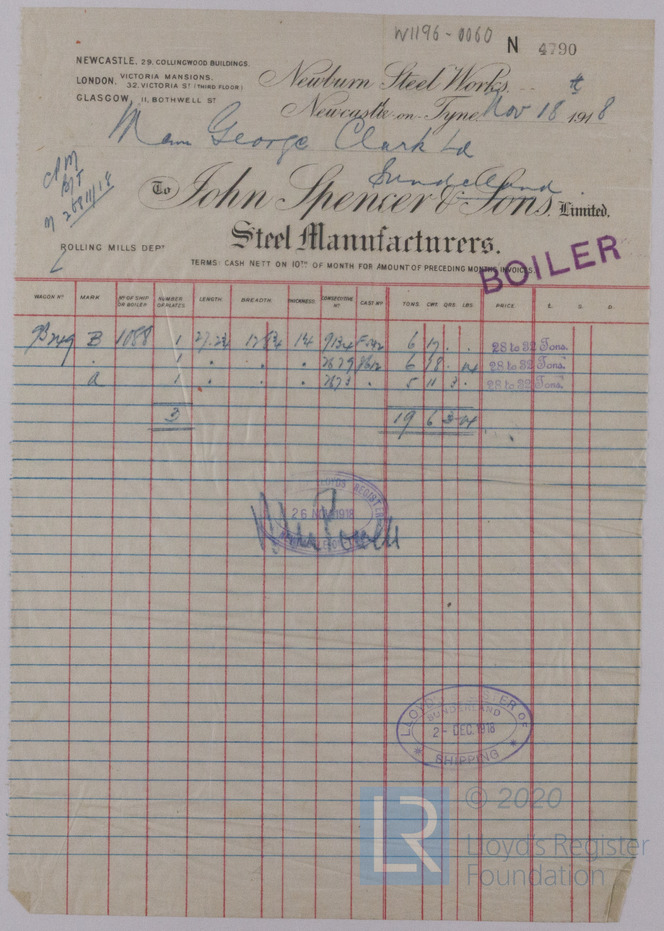 W1196-0060 N 4790
NEWCASTLE, 29, COLLINGWOOD BUILDINGS.
LONDON, VICTORIA MANSIONS, 32, VICTORIA ST (THIRD FLOOR)
GLASGOW, 11, BOTHWELL ST
Newburn Steel Works,
Newcastle-on-Tyne, Nov 18th 1918
George Clark Ld
Sunderland
To John Spencer & Sons, Limited.
Steel Manufacturers.
ROLLING MILLS DEPT
TERMS: CASH NETT ON 10TH OF MONTH FOR AMOUNT OF PRECEDING MONTHS INVOICES.
BOILER
WAGON Nº MARK Nº OF SHIP OR BOILER NUMBER OF PLATES LENGTH. BREADTH. THICKNESS. CONSECUTIVE Nº CAST Nº TONS CWT. QRS. LBS PRICE £. S. D.
B 1088 1 1¼ 6 17 . . 28 to 32 Tons.
. 1 . . . 2679 6 18 . 14 28 to 32 Tons.
a 1 . . . . 5 11 3 . 28 to 32 Tons.
3 19 6 3 14
LLOYDS REGISTER
26 NOV 1918
LLOYD'S REGISTER OF
SUNDERLAND
2- DEC. 1918
SHIPPING
LR
© 2020
Lloyd's Register
Foundation